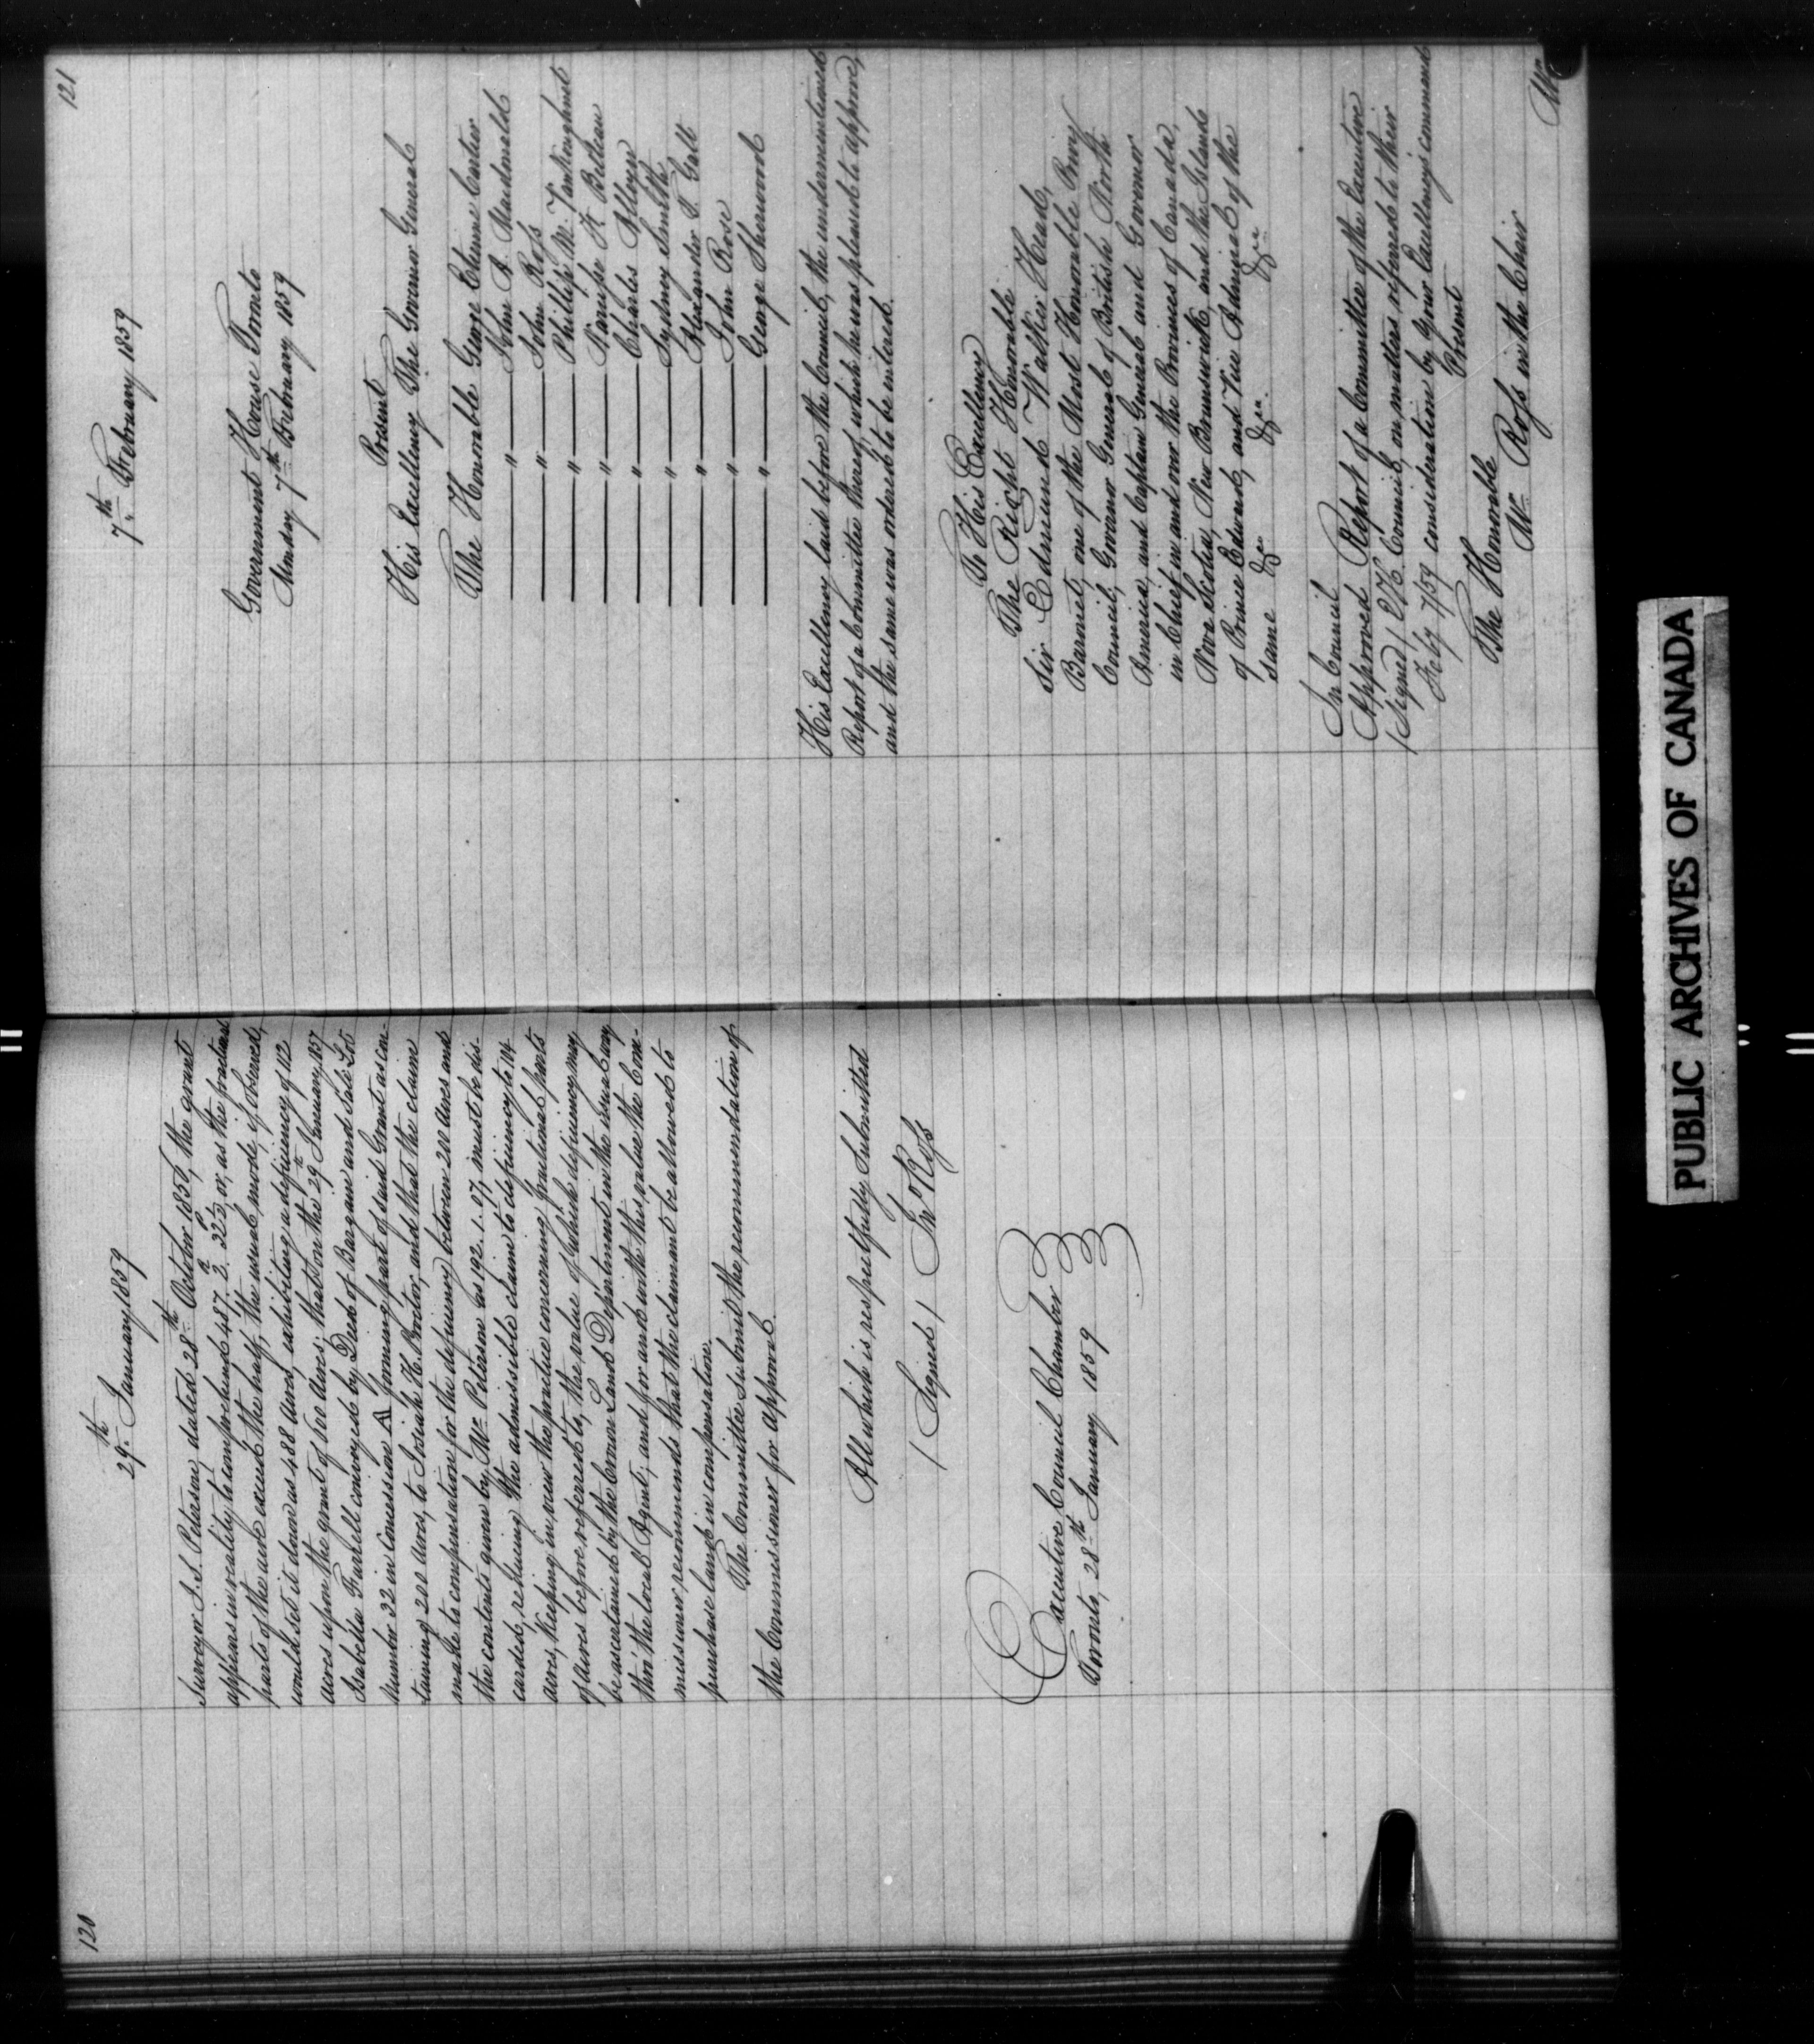 120
29th January 1859
Surveyor J. S. Peterson, dated 28th October 1856, the grant
appears in reality to comprehend 487a. 3. 32p, or, as the fractional
parts of the acre exceed the half, the usual mode, if observed,
would set it down as 488 Acres, exhibiting a deficiency of 112
acres upon the grant of 600 Acres; that on the 29th January 1857
Isabella Farrell conveyed by Deed of Bargain and Sale Lot
Number 32 in Concession A forming part of said Grant as con-
taining 200 Acres, to Josiah H. Proctor, and that the claim
made to compensation for the deficiency between 200 acres and
the contents given by Mr Peterson as 192. 1. 07, must be dis-
carded, reducing the admissible claim to deficiency to 104
acres, Keeping in view the practice concerning fractional parts
of acres before referred to, the value of which deficiency may
be ascertained by the Crown Lands Department in the usual way
thro' the local Agent; and for and with this value the Com-
missioner recommends that the claimant be allowed to
purchase land in compensation.
The Committee submit the recommendation of
the Commissioner for approval.
All which is respectfully Submitted
/ Signed / Jno Ross
Executive Council Chamber
Toronto, 28th January 1859
121
7th February 1859
Government House Toronto
Monday 7th February 1859
Present
His Excellency The Governor General
The Honorable George Etienne Cartier
" John A. Macdonald
" John Ross
" Phillip M. Vankoughnet
" Narcisse F. Belleau
" Charles Alleyn
" Sydney Smith
" Alexander T. Galt
" John Rose
" George Sherwood
His Excellency laid before the Council, the undermentioned
Report of a Committee thereof, which he was pleased to approve,
and the same was ordered to be entered.
To His Excellency
The Right Honorable
Sir Edmund Walker Head,
Baronet, one of the Most Honorable Privy
Council, Governor General of British North
America, and Captain General and Governor
in Chief in and over the Provinces of Canada,
Nova Scotia, New Brunswick, and the Islands
of Prince Edward, and Vice Admiral of the
same &c. &c. &c.
In Council
Approved
/Signed/ E. H.
Feby 7/59
Report of a Committee of the Executive
Council, on matters referred to their
consideration by Your Excellency's command
Present
The Honorable
Mr Ross in the Chair
PUBLIC ARCHIVES OF CANADA